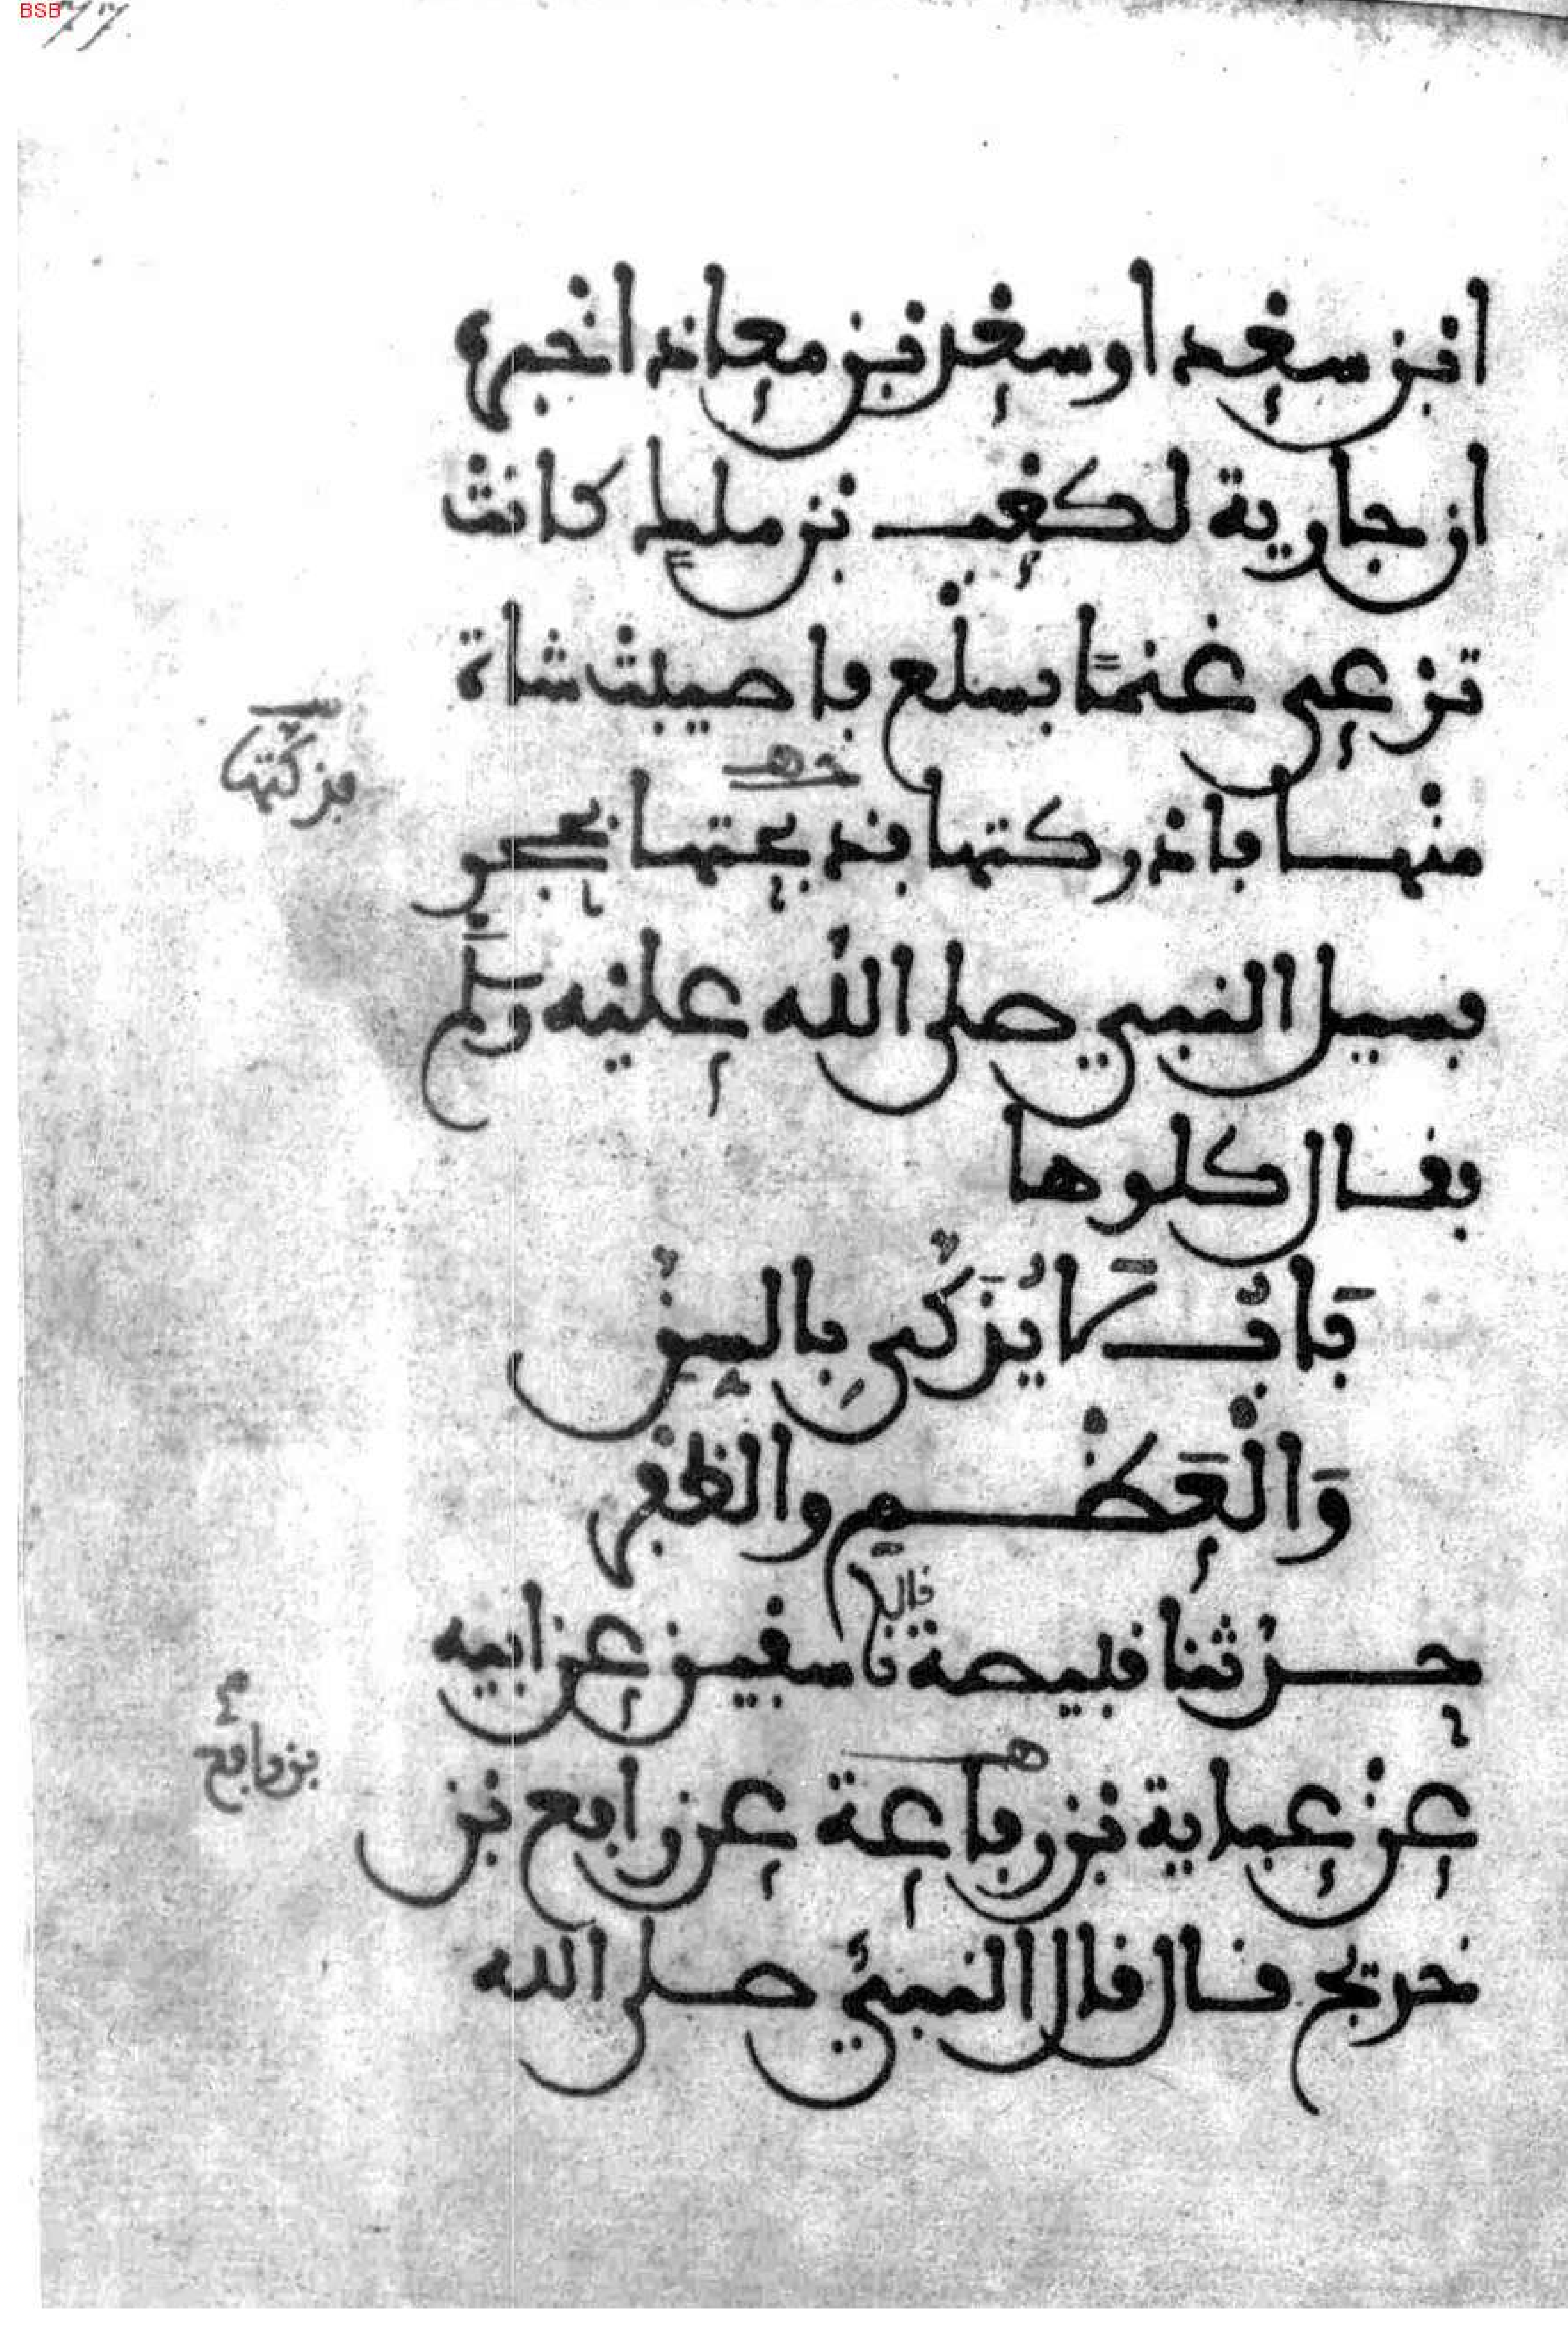 ابن سعد او سعد بن معاذ اخبره
ان جارية لكعب بن ملك كانت
ترعى غنما بسلع فاصيبت شاة
فزكتها
منها فادركتها فذبحتها بحجر
فسيل النبي صلى الله عليه وسلم
فقال كلوها
بَابٌ لَا يُزَكَّى بِالسِّنِّ
وَالْعَظْمِ والظفر
حدثنا قبيصة نا سفين عن ابيه
قال
عن عباية بن رفاعة عن رافع بن
بن رافع
خديج قال قال النبي صلى الله
77
BSB